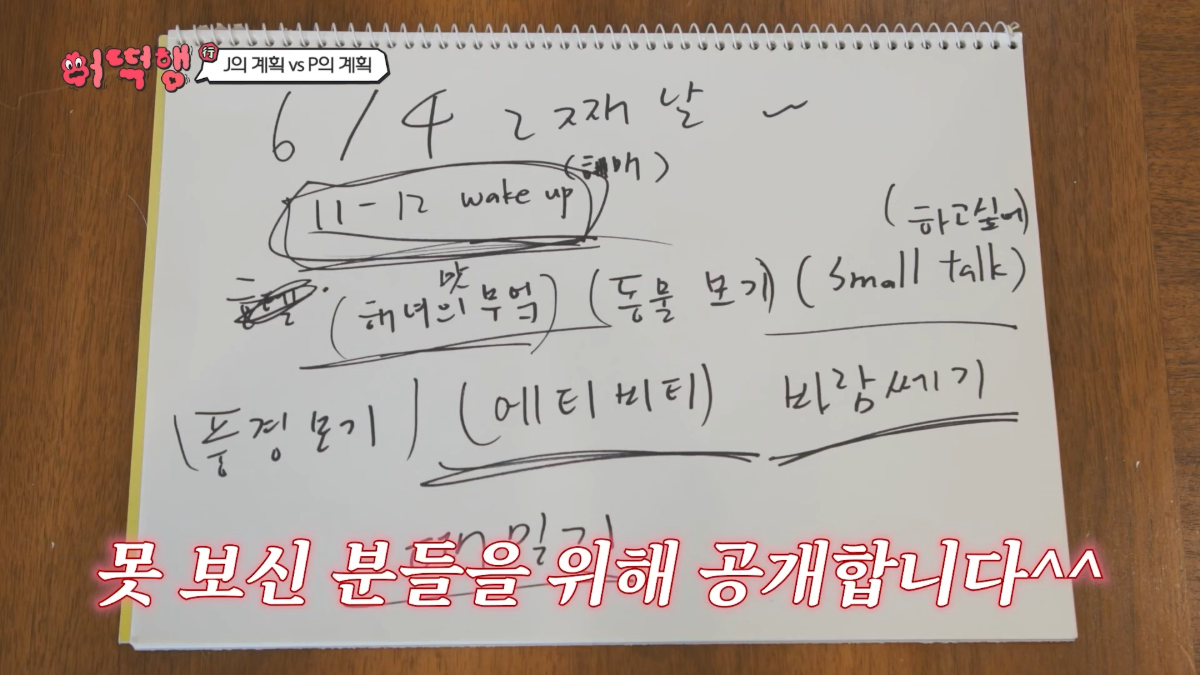 어떡행 行 J의 계획 vs P의 계획
6/4 2째날 ~
11-12 wake up
(하고싶에)
맛
(해녀의 부엌) (동물 보기) (Small talk)
(풍경보기) (에티비티) 바람쎄기
못 보신 분들을 위해 공개합니다^^